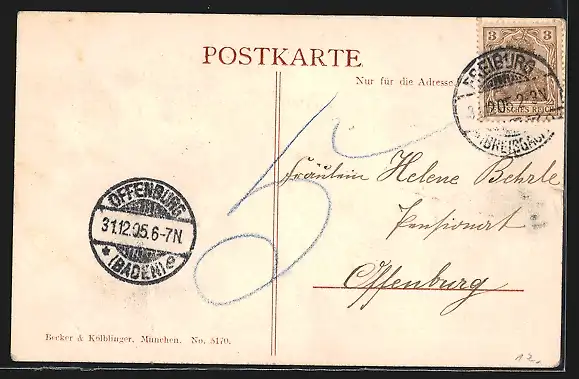 POSTKARTE
Nur für die Adresse
3 3
DEUTSCHES REICH
FREIBURG
(BREISGAU)
5
Fräulein Helene Behrle
Pensionat
Offenburg
OFFENBURG
31.12.05.6-7N.
* (BADEN) e
Becker & Kölblinger, München. No. 5170.
12.